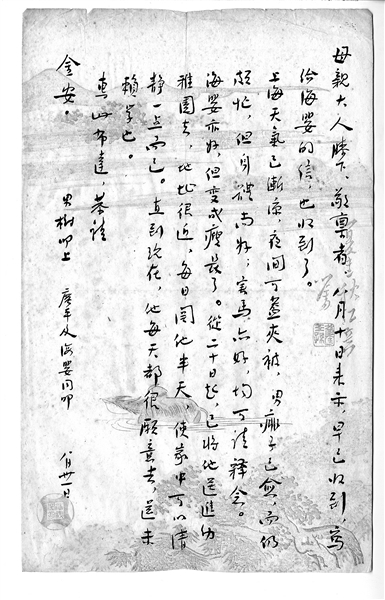 母親大人膝下、敬禀者、八月十日来示，早已收到，寫
給海嬰的信，也收到了。
上海天氣已漸涼，夜間可蓋夾被，男痱子已愈，而仍
頗忙，但身體尚好，害馬亦好，均可請釋念。
海嬰亦好，但变成瘦長了。從二十日起，已將他送進幼
稚園去，地址很近，每日關他半天，使家中可以清
静一点而已。直到現在，他每天都很願意去，還未
賴學也。
專此布達，恭請
金安。
男樹叩上 廣平及海嬰同叩 八月卅一日